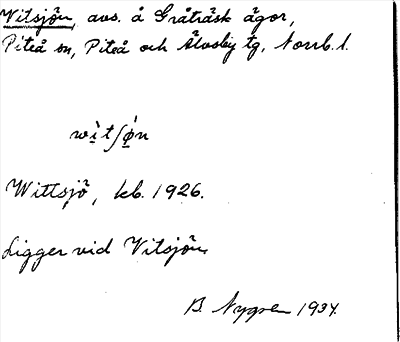 Vitsjön, avs. å Gråträsk ägor,
Piteå sn, Piteå och Älvsby tg, Norrb. l.
wìtʃø̀n
Wittsjö, kb. 1926.
Ligger vid Vitsjön.
B. Nygren 1934.